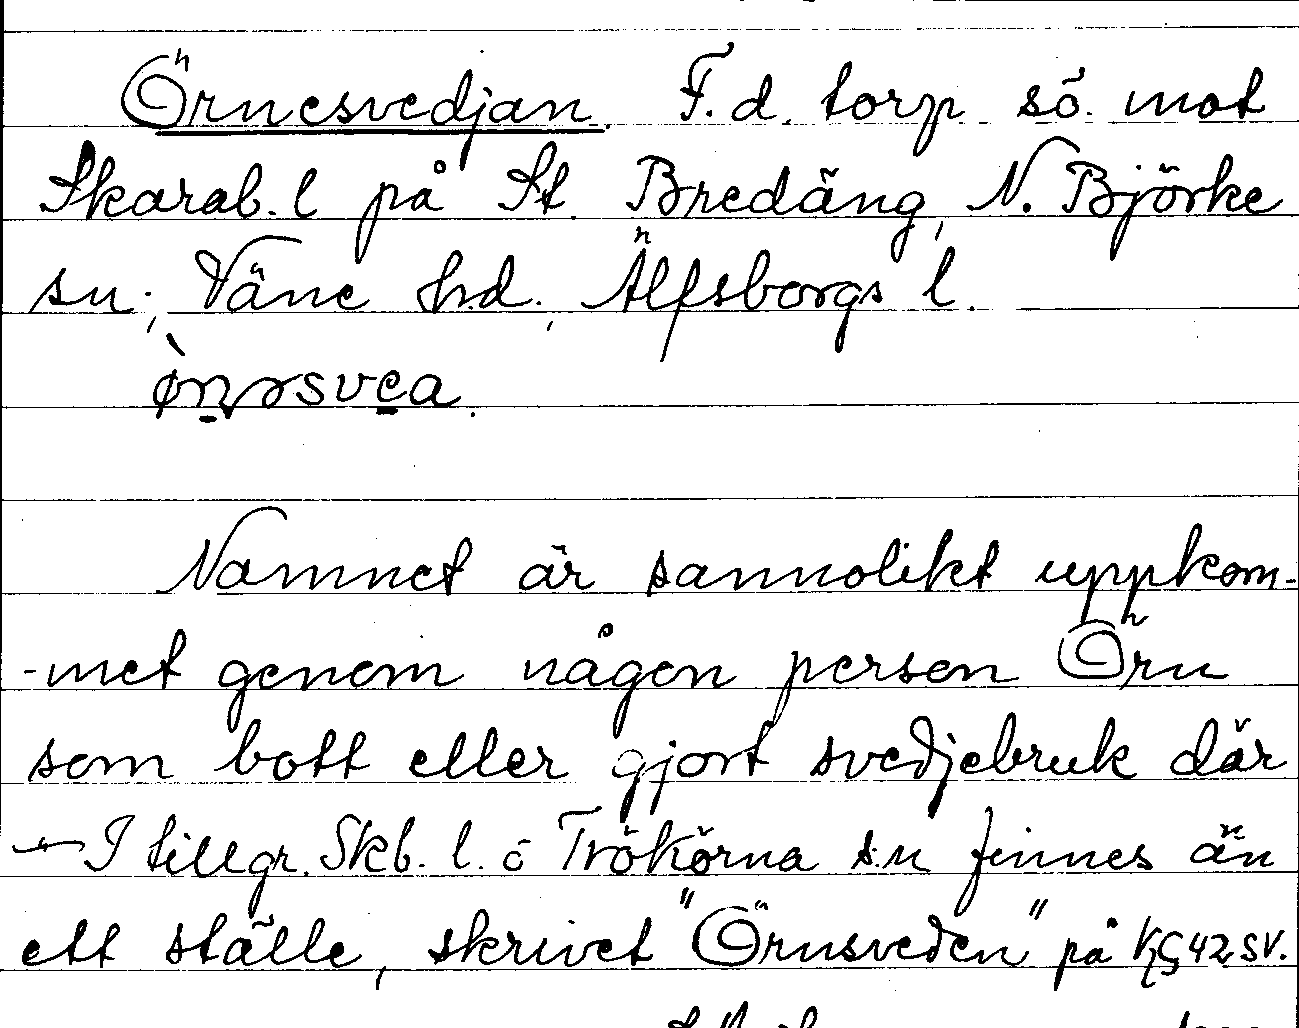 Örnesvedjan. F.d. torp sö. mot
Skarab. l på St. Bredäng, N. Björke
sn, Väne hd., Älfsborgs l.
Namnet är sannolikt uppkom-
-met genom någon person Örn
som bott eller gjort svedjebruk där
— I tillgr. Skb. l. o Trökörna sn finnes än
ett ställe, skrivet "Örnsveden" på KG 42 SV.